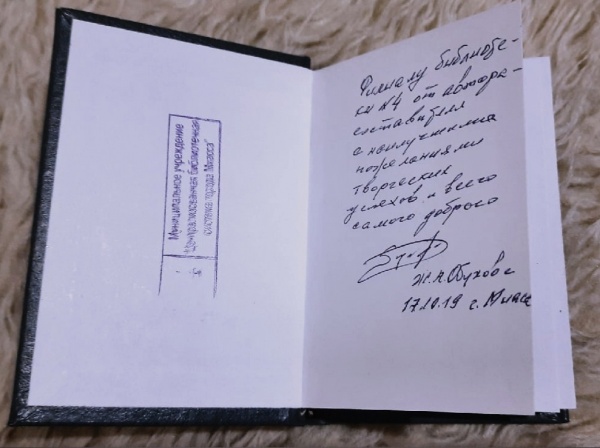 Муниципальное учреждение
"Централизованная библиотечная
система города Миасса"
Филиалу библиоте-
ки №4 от автора-
составителя
с наилучшими
пожеланиями
творческих
успехов и всего
самого доброго
17.10.19 г. Миасс